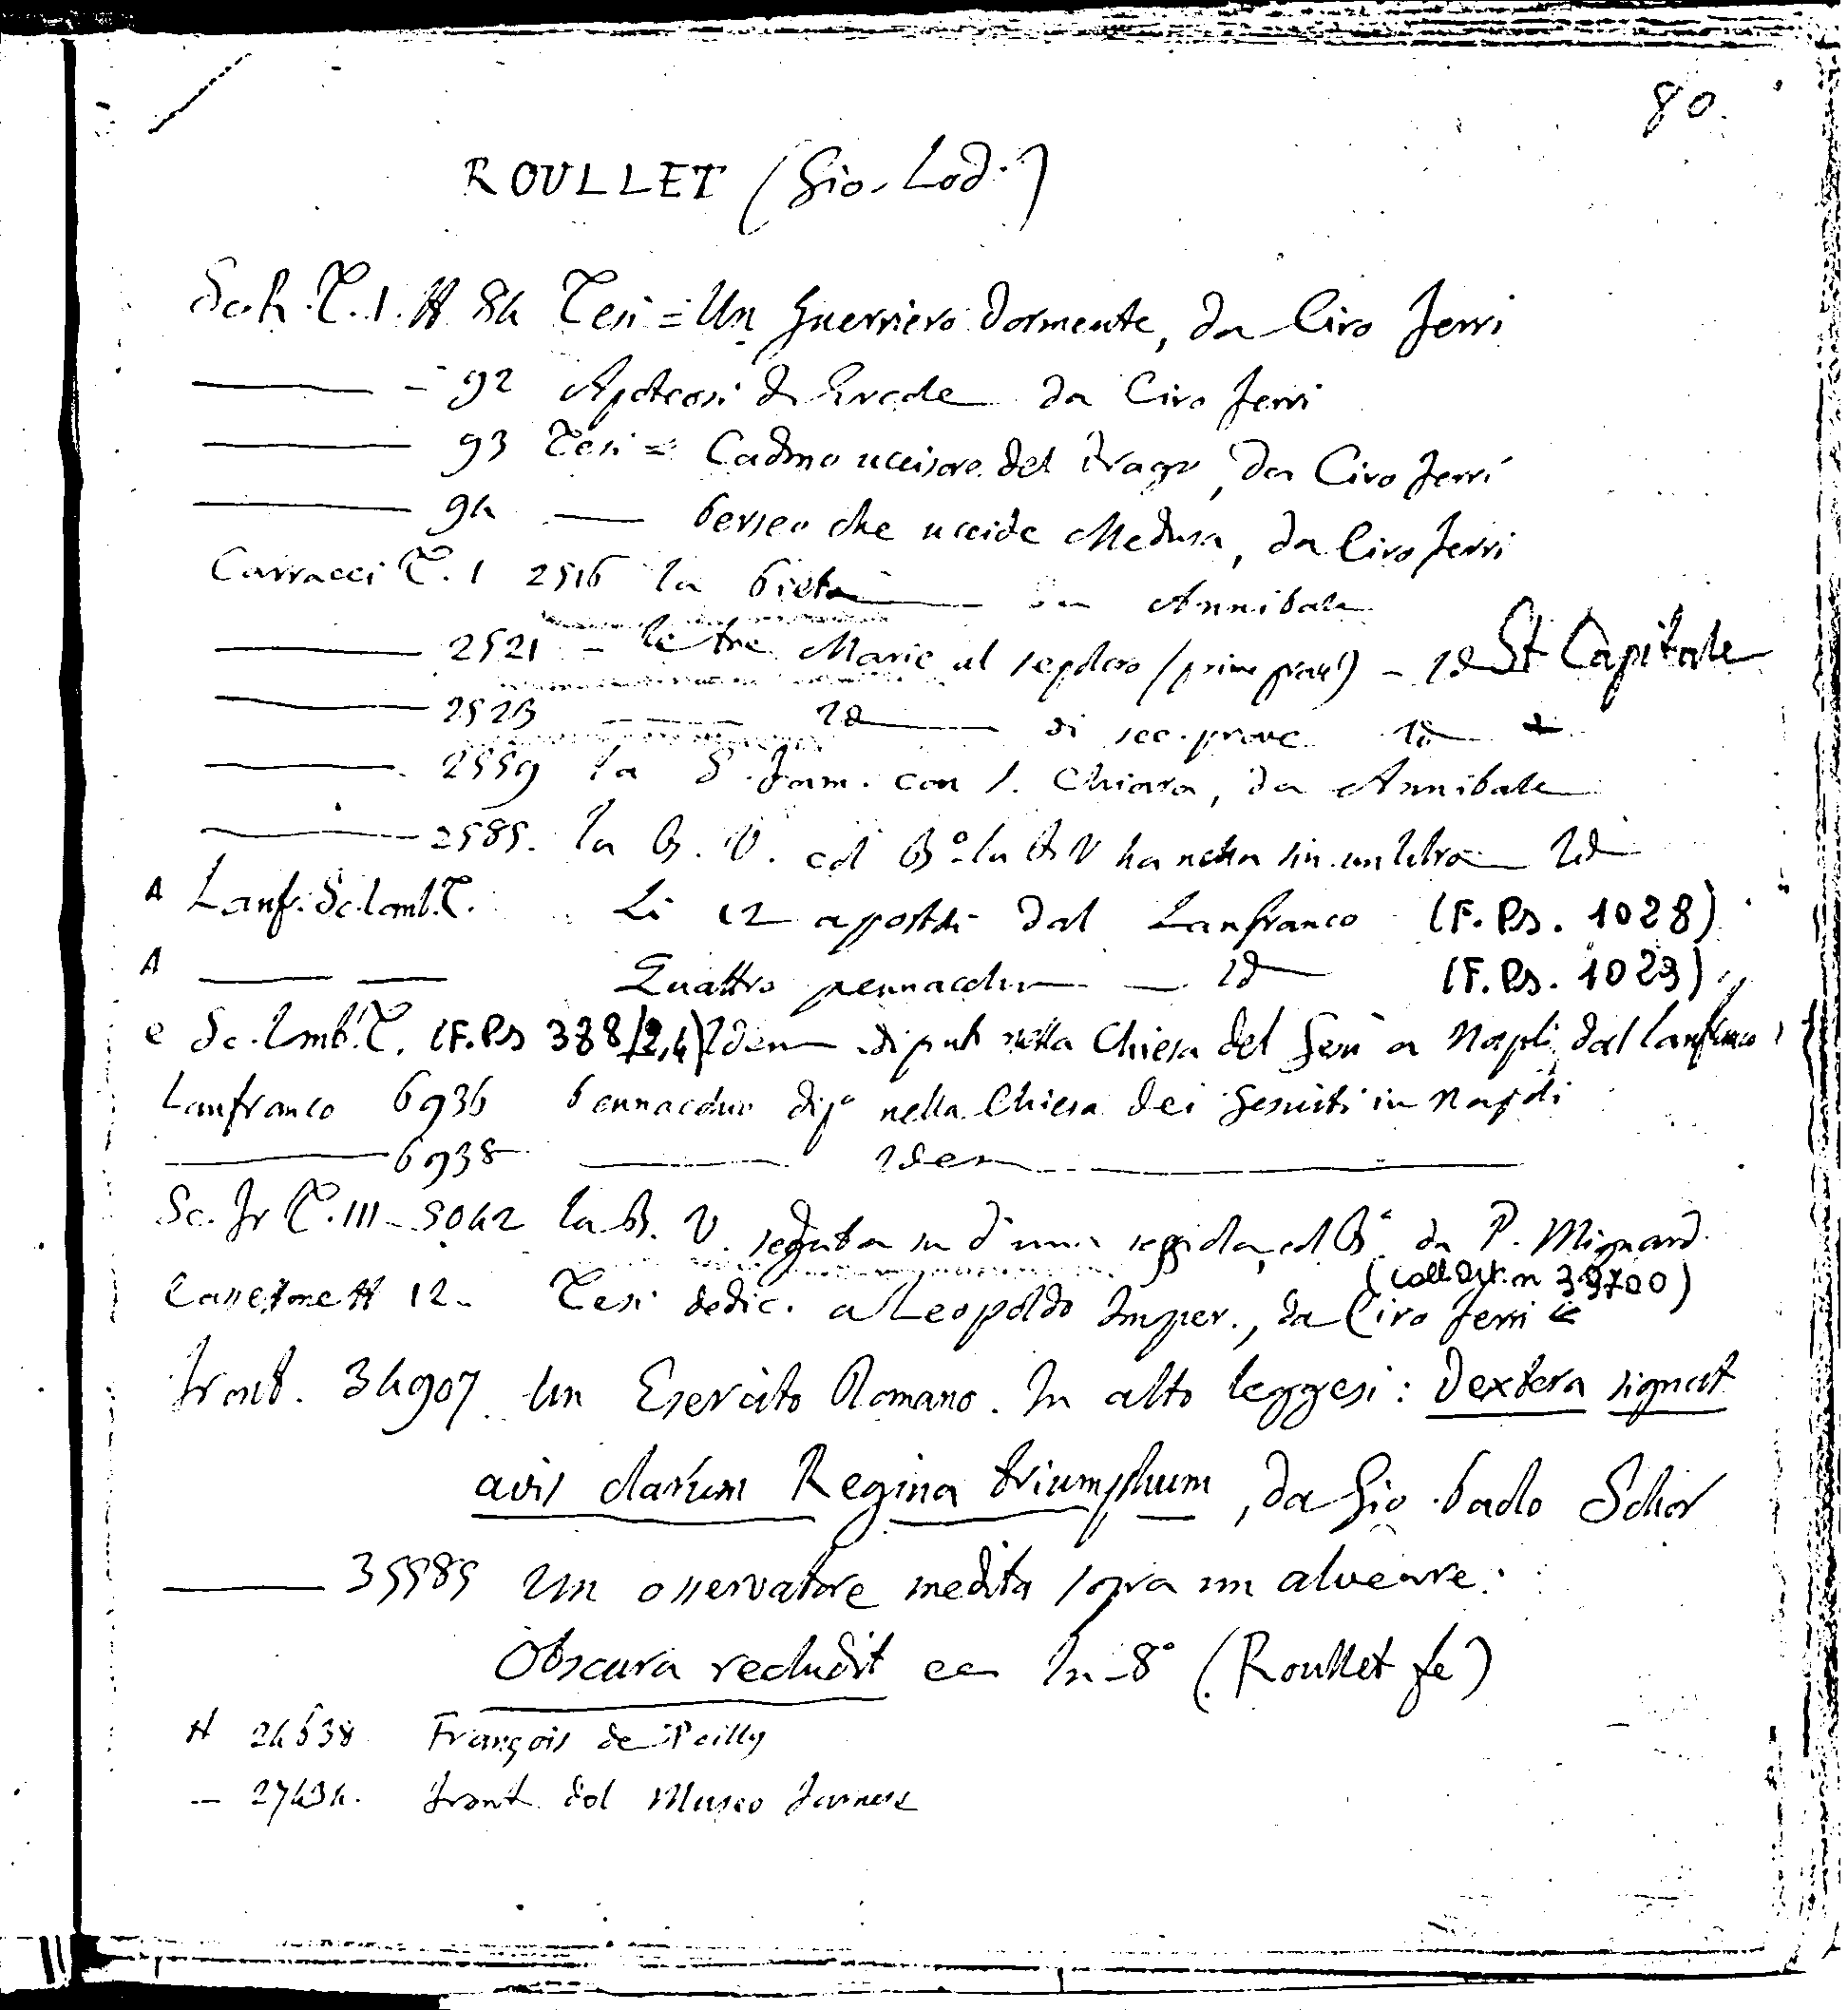 80.
ROULLET (Gio. Lod.)
Sch. T. 1. H 84 Tesi = Un Guerriero dormente, da Ciro Ferri
——— – 92 Apoteosi di Ercole da Ciro Ferri
——— 93 Tesi = Cadmo uccisore del drago, da Ciro Ferri
——— 94 —— Perseo che uccide Medusa, da Ciro Ferri
Carracci T. 1 2516 la Pietà —— da Annibale
——— 2521 – le tre Marie al sepolcro (prime prove) – Id St Capitale
——— 2523 —— Id —— di sec. prove Id
——— 2559 la S. Fam. con S. Chiara, da Annibale
——— 2585. la B. V. col Bº la B V ha nella sin. un libro Id
A Lanf. Sc. Lomb. T. Li 12 apostoli dal Lanfranco (F. Ps. 1028)
A —— —— Quattro pennacchi — Id (F. Ps. 1029)
e Sc. Lomb. T. (F. Ps 388/2,4) Idem dipinti nella Chiesa del Gesù a Napoli dal Lanfranco
Lanfranco 6936 Pennacchio dipº nella Chiesa dei Gesuiti in Napoli
——— 6938 ——— Idem ———
Sc. Fr T. III – 5042 la B. V. seduta su d'una seggiola, col Bº da P. Mignard
Cassettone H 12 – Tesi dedic. a Leopoldo Imper., da Ciro Ferri (coll. n 39700)
Front. 34907 Un Esercito Romano. In alto leggesi: Dextera signat
avis clarum Regina triumphum, da Gio. Paolo Schor
——— 35585 Un osservatore medita sopra un alveare:
Obscura recludit ec In-8º (Roullet fe)
H 24638 François de Poilly
– 27434. Front. del Museo Farnese